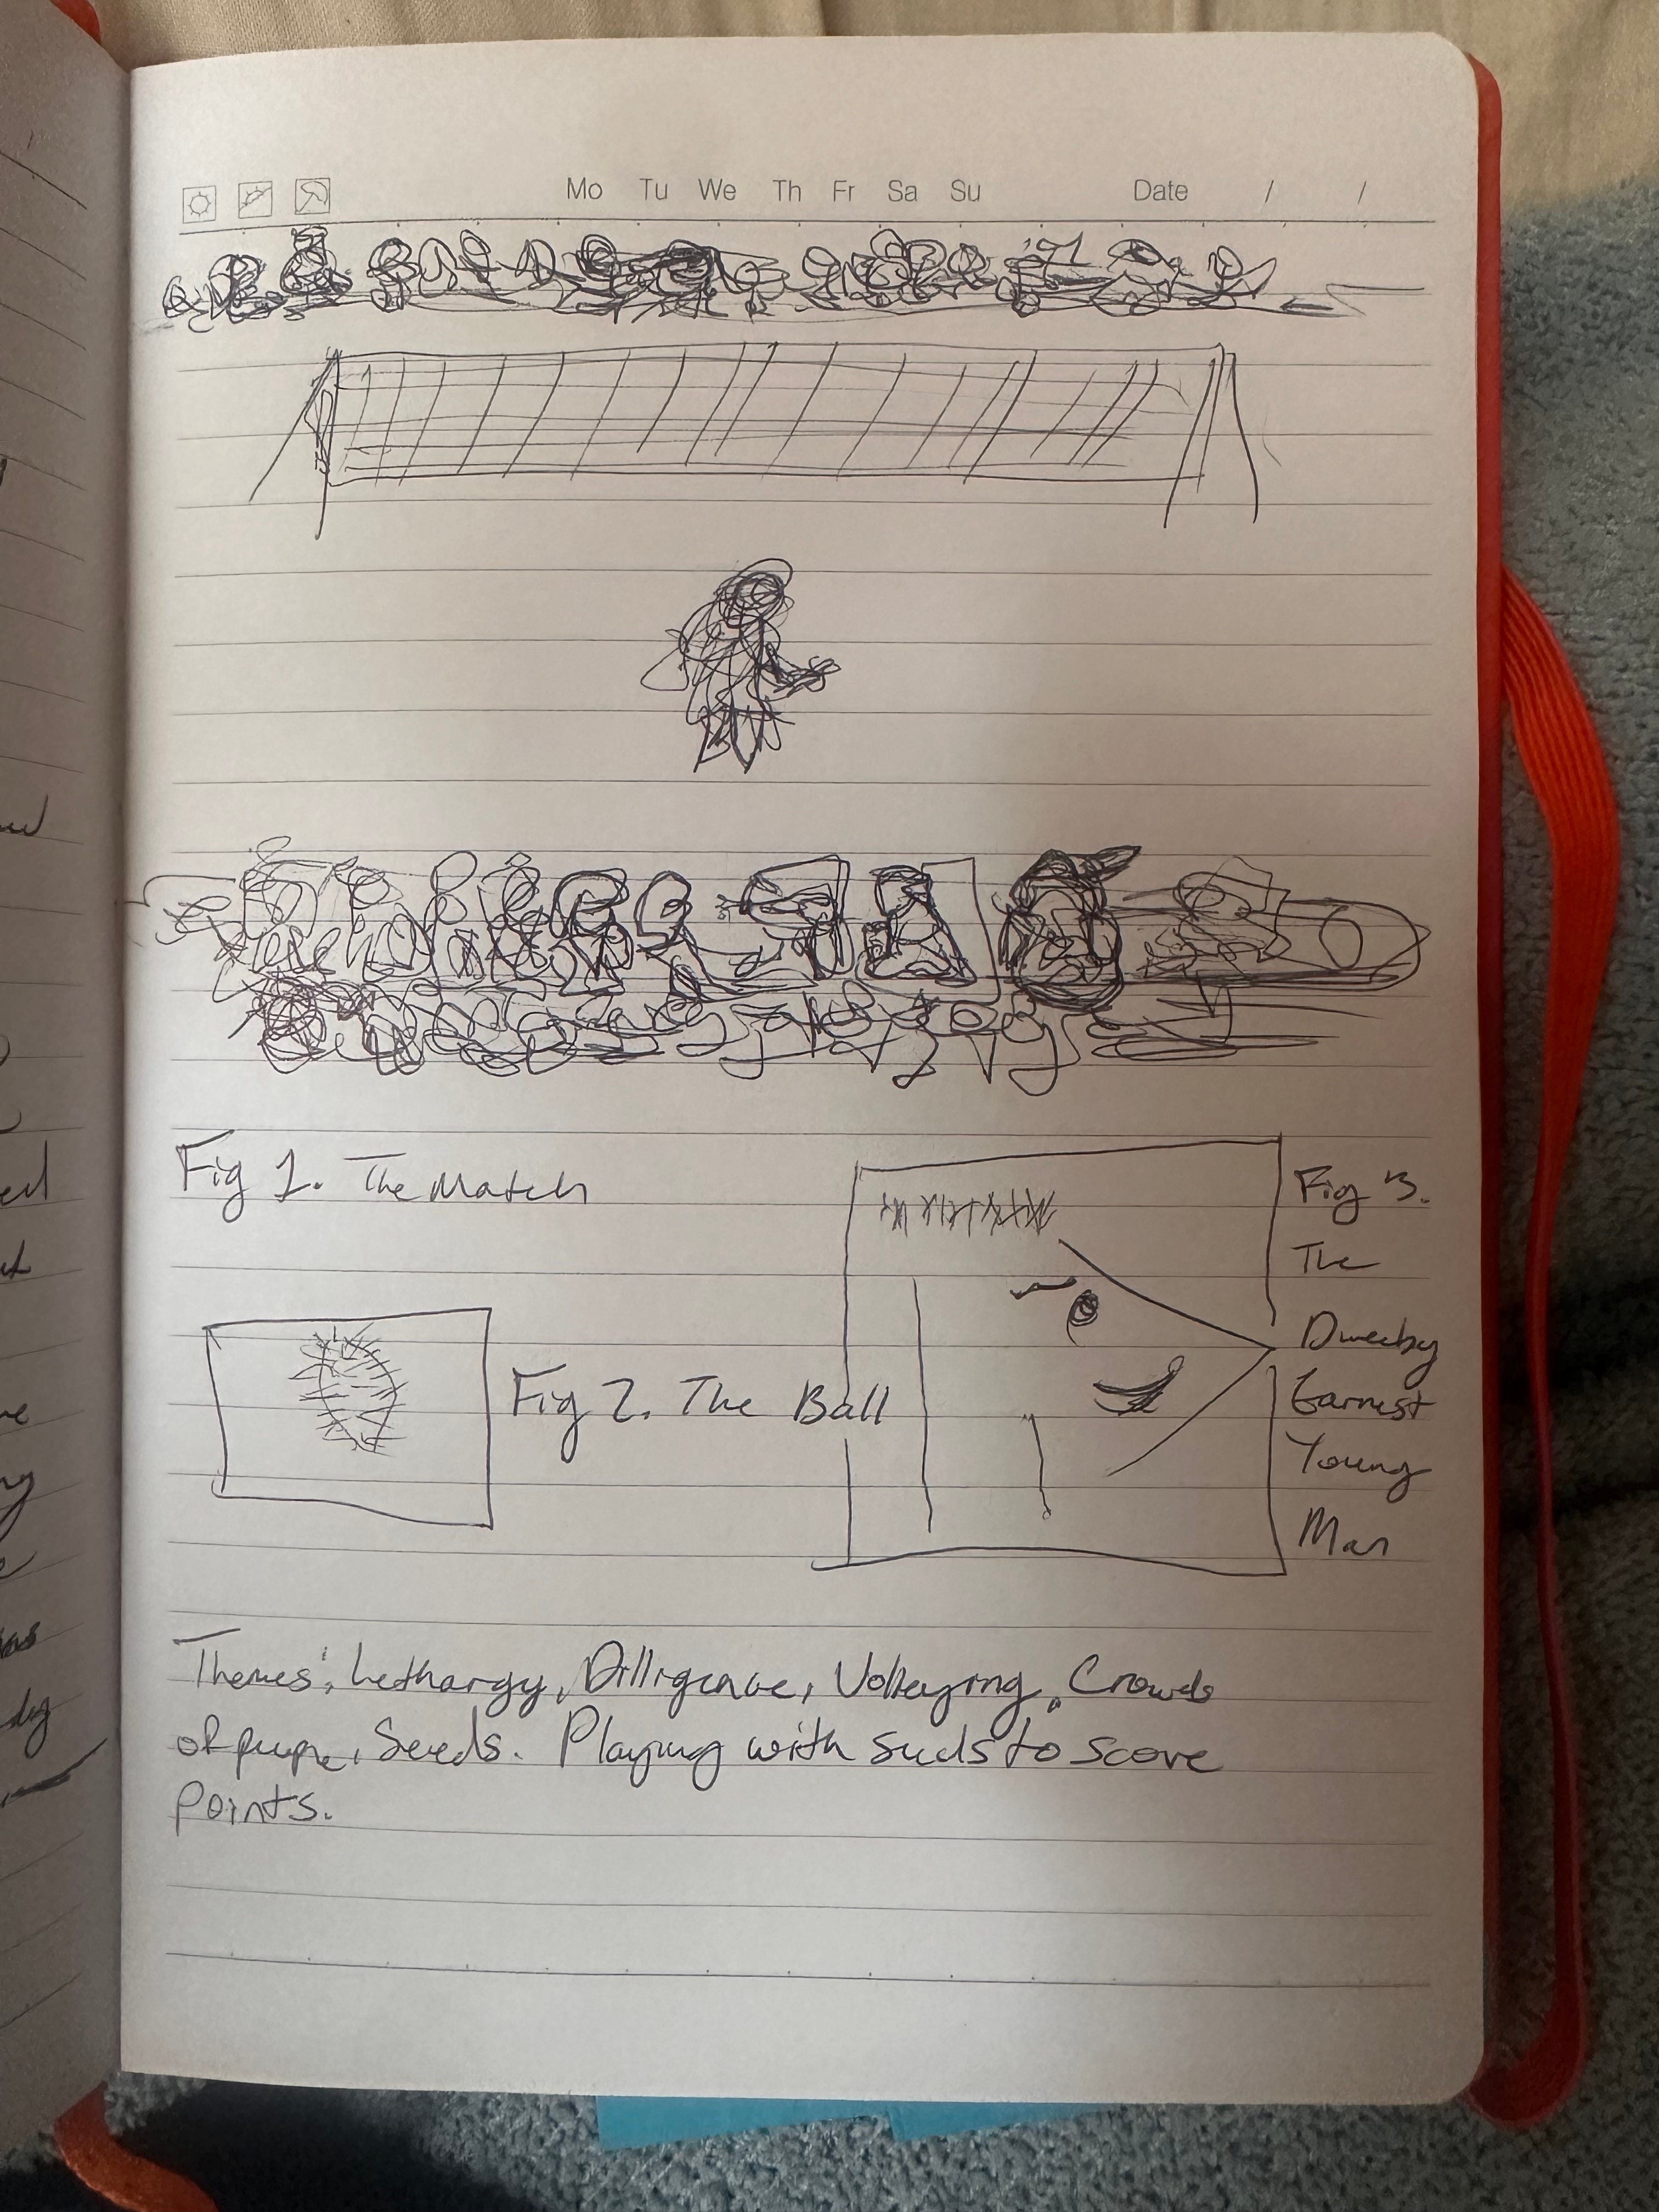 Mo Tu We Th Fr Sa Su Date / /
Fig 1. The Match
Fig 3.
The
Dweeby
Earnest
Young
Man
Fig 2. The Ball
Themes: Lethargy, Dilligence, Volleying, Crowds
of , Seeds. Playing with seeds to score
points.